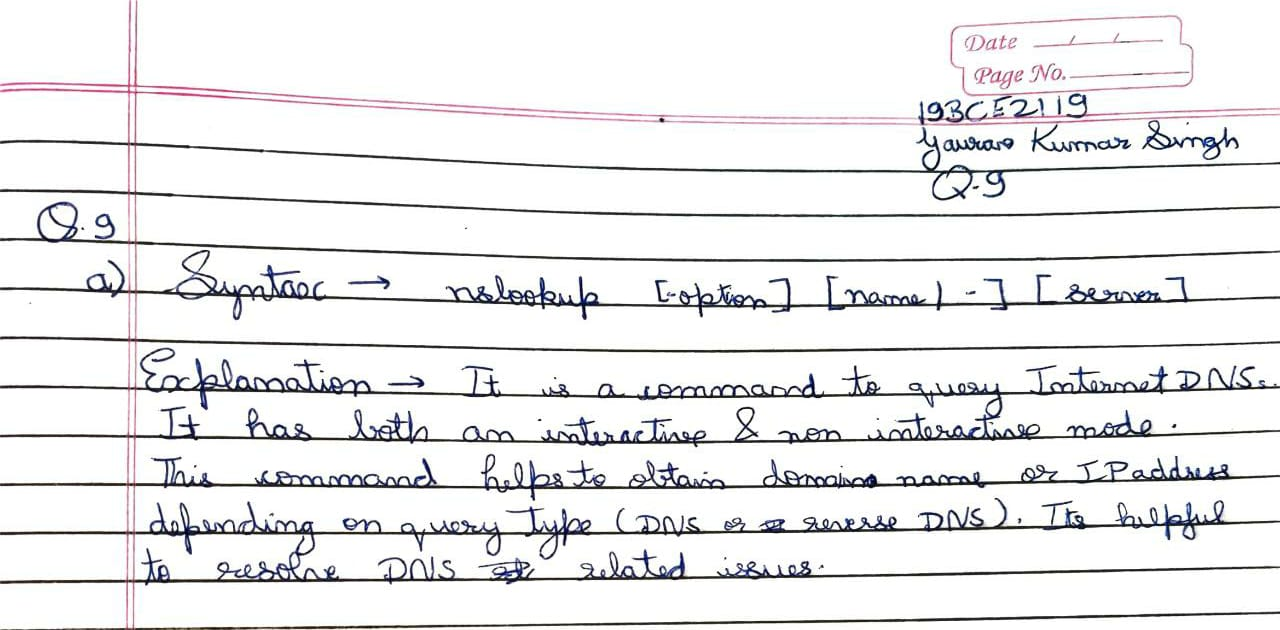 Date / /
Page No.
19BCE2119
Gaurav Kumar Singh
Q.9
Q.9
a) Syntax → nslookup [-option] [name | -] [server]
Explanation → It is a command to query Internet DNS.
It has both an interactive & non interactive mode.
This command helps to obtain domain name or IP address
depending on query Type (DNS or reverse DNS). Its helpful
to resolve DNS related issues.